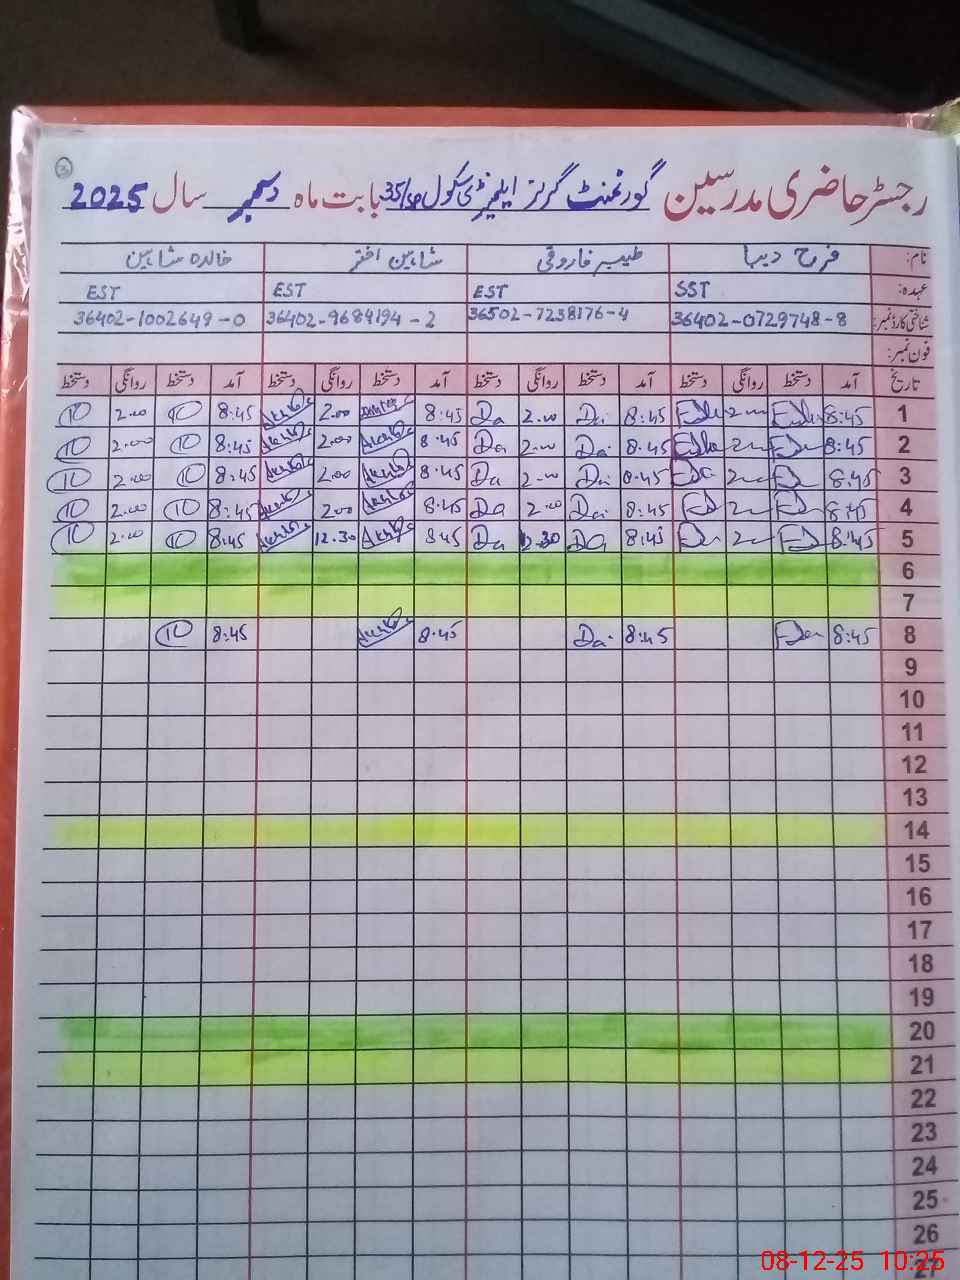 رجسٹر حاضری مدرسین گورنمنٹ گرلز ایلیمنٹری سکول 35/SP بابت ماہ دسمبر سال 2025
نام: فرح دیبا طیبہ فاروقی شاہین اختر خالدہ شاہین
عہدہ: SST EST EST EST
شناختی کارڈ نمبر: 36402-0729748-8 36502-7238176-4 36402-9684194-2 36402-1002649-0
فون نمبر:
تاریخ آمد دستخط روانگی دستخط آمد دستخط روانگی دستخط آمد دستخط روانگی دستخط آمد دستخط روانگی دستخط
1 8:45 8:45 Da 2.00 Da 8:45 2.00 8:45 2.00
2 8:45 8:45 Da 2.00 Da 8:45 2.00 8:45 2.00
3 8:45 8:45 Da 2.00 Da 8:45 2.00 8:45 2.00
4 8:45 8:45 Da 2.00 Da 8:45 2.00 8:45 2.00
5 8:45 8:45 Da Da 8:45 12.30 8:45 2.00
6
7
8 8:45 8:45 Da 8:45 8:45
9
10
11
12
13
14
15
16
17
18
19
20
21
22
23
24
25
26
27
08-12-25 10:25